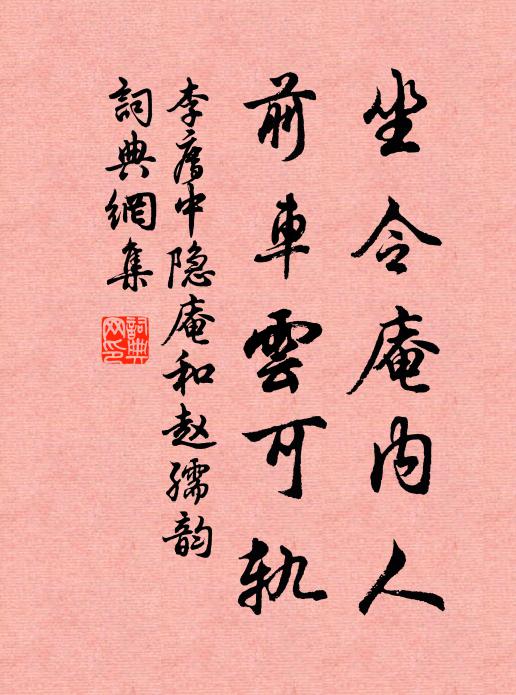 坐令庵内人
前车雲可軌
李处中隐庵和赵孺韵
詞典網集
詞典網印